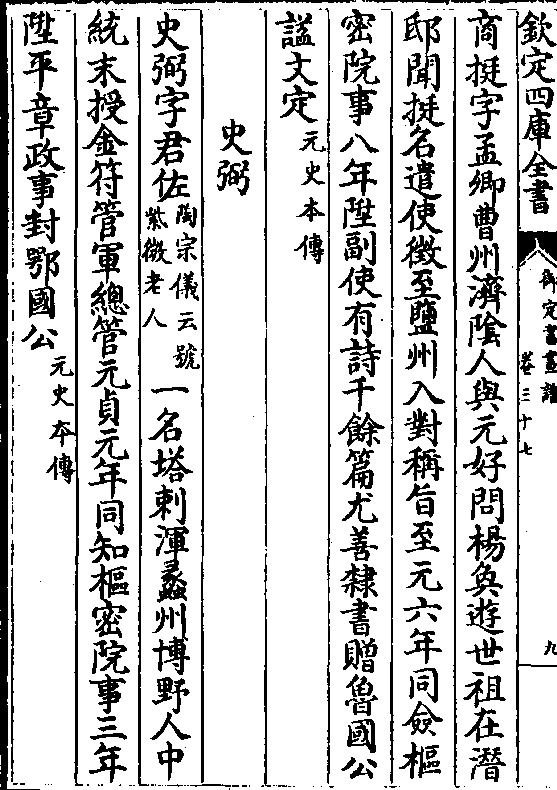 欽定四庫全書
御定書畫譜
卷三十七
九
商挺字孟卿曹州濟陰人與元好問楊奐遊世祖在潛
邸聞挺名遣使徵至鹽州入對稱旨至元六年同僉樞
密院事八年陞副使有詩千餘篇尤善隸書贈魯國公
諡文定元史本傳
史弼
史弼字君佐陶宗儀云號紫微老人一名塔剌渾蠡州博野人中
統末授金符管軍總管元貞元年同知樞密院事三年
陞平章政事封鄂國公元史本傳